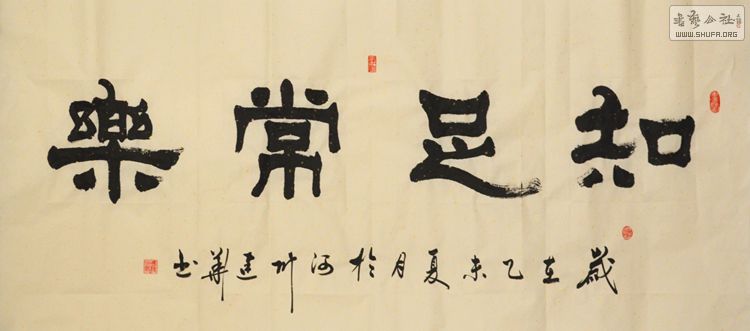 知足常樂
歲在乙未夏月於河州建華書
書藝公社
WWW.SHUFA.ORG